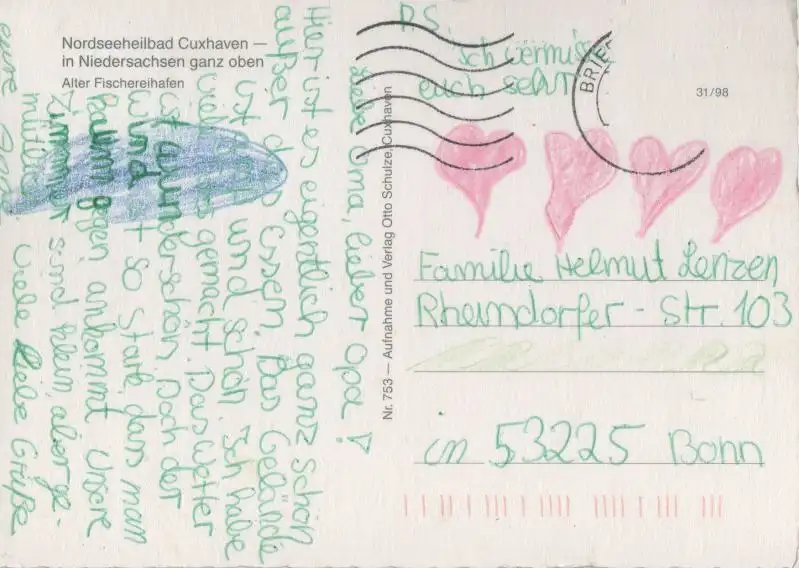 Nordseeheilbad Cuxhaven —
in Niedersachsen ganz oben
Alter Fischereihafen
Liebe Oma, lieber Opa!
Hier ist es eigentlich ganz schön
außer dem Essen. Das Gelände
ist und schön. Ich habe
viel gemacht. Das Wetter
ist wunderschön. Doch der
Wind ist so stark, dass man
kaum gegen ankommt. Unsere
Zimmer sind klein, aber ge-
mütlich. Viele liebe Grüße
eure
P.S.
ich vermisse
euch sehr
BRIEF
31/98
Nr. 753 — Aufnahme und Verlag Otto Schulze, Cuxhaven
Familie Helmut Lenzen
Rheindorfer - Str. 103
in 53225 Bonn